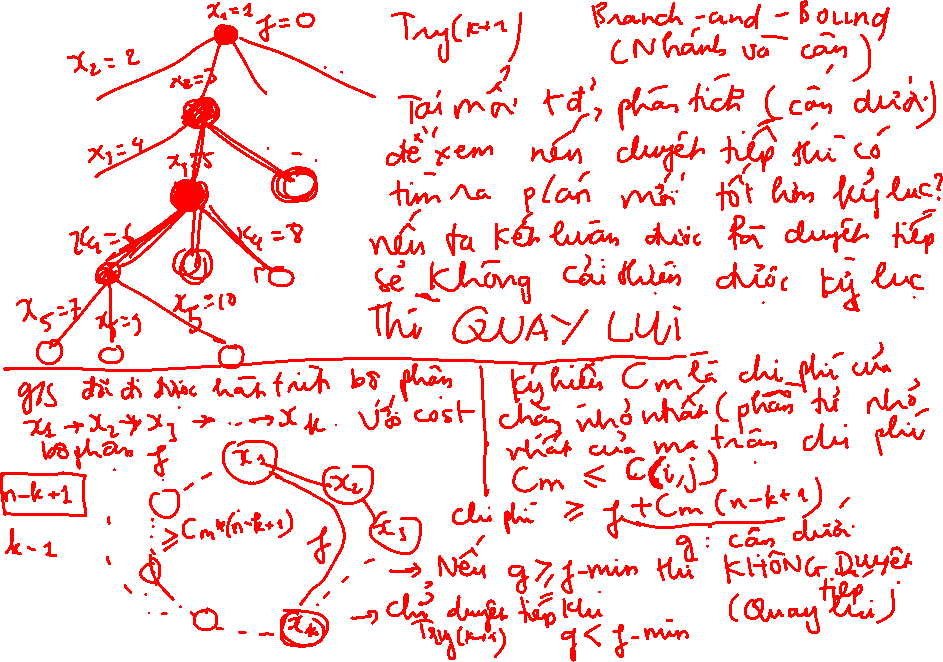 x₁ = 1
f = 0
x₂ = 2
x₂ = 3
x₃ = 4
x₃ = 5
x₄ = 6
x₄ = 8
x₅ = 7
x₅ = 9
x₅ = 10
Try(k+1)
Branch-and-Bound
(Nhánh và cận)
Tại mỗi t/đ, phân tích (cận dưới)
để xem nếu duyệt tiếp thì có
tìm ra p/án mới tốt hơn kỷ lục?
nếu ta kết luận được là duyệt tiếp
sẽ không cải thiện được kỷ lục
Thì QUAY LUI
g/s đã đi được hành trình bộ phận
x₁ → x₂ → x₃ → ... → xₖ với cost
bộ phận f
n-k+1
k-1
x₁
x₂
x₃
xₖ
f
≥ Cm*(n-k+1)
Ký hiệu Cm là chi phí của
chặng nhỏ nhất (phần tử nhỏ
nhất của ma trận chi phí
Cm ≤ C(i,j)
chi phí ≥ f + Cm (n-k+1)
g: cận dưới
→ Nếu g ≥ f-min thì KHÔNG Duyệt
tiếp
(Quay lui)
→ Chỉ duyệt tiếp khi
Try(k+1)
g < f-min